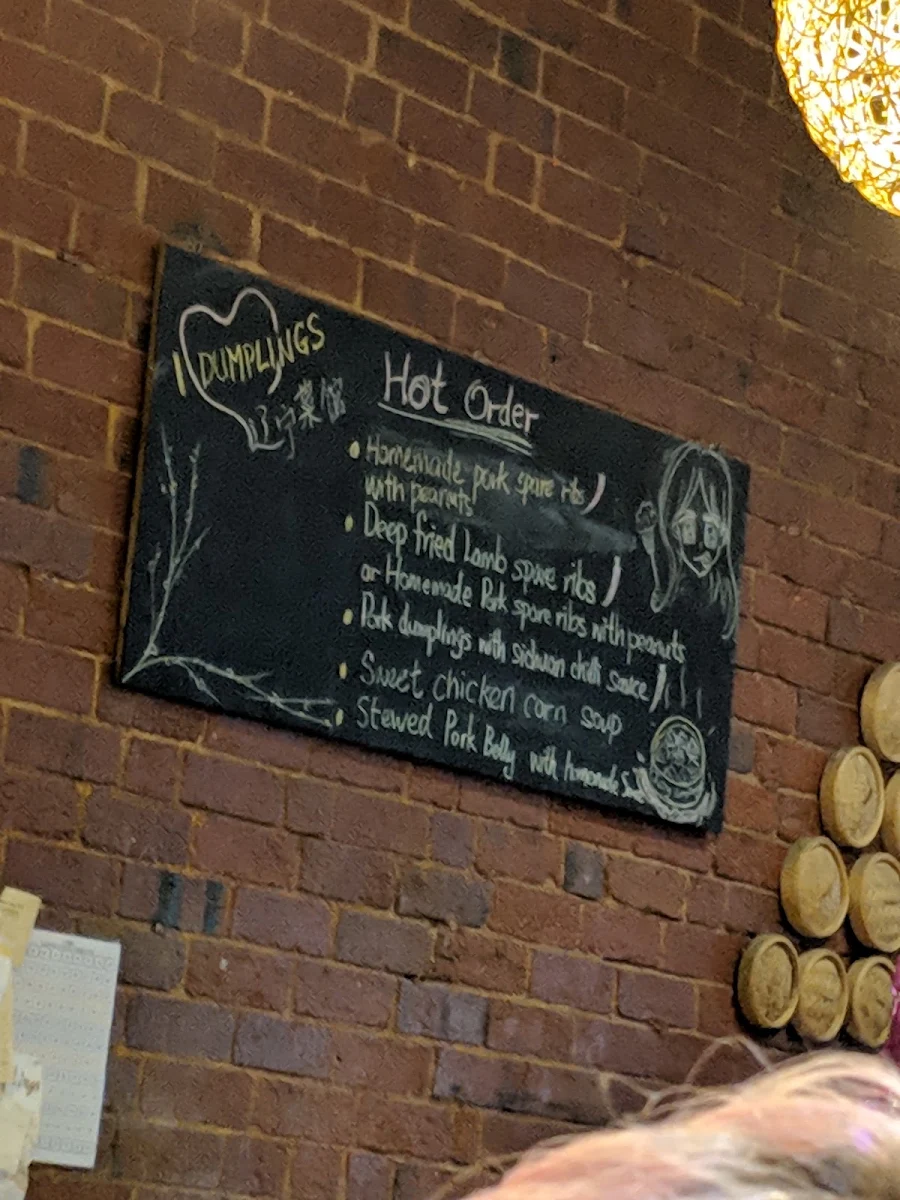 I DUMPLINGS
辽宁菜馆
Hot Order
• Homemade pork spare ribs
with peanuts
• Deep fried Lamb spare ribs
or Homemade Pork spare ribs with peanuts
• Pork dumplings with sichuan chilli sauce
• Sweet chicken corn soup
• Stewed Pork Belly with homemade